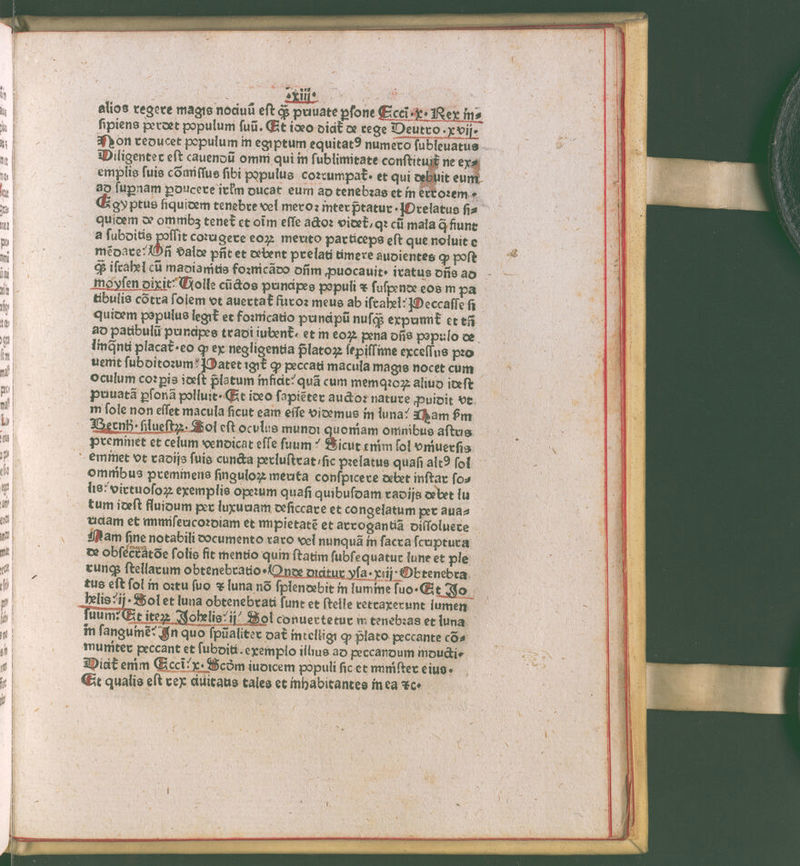 .xiii.
alios regere magis nociuū est q̄ƺ priuate ꝑsone Ecci .x. Rex in⸗
sipiens perdet populum suū. Et ideo dicit̄ de rege Deutro .xvij.
Non reducet populum in egiptum equitatꝰ numero subleuatus
Diligenter est cauendū omni qui in sublimitate constituit̄ ne ex⸗
emplis suis cōmissus sibi populus corrumpat̄. et qui debuit eum
ad supnam ꝓducere irl̄m ducat eum ad tenebras et in errorem.
Egyptus siquidem tenebre vel meror interp̄tatur. Prelatus si⸗
quidem de ommibꝫ tenet̄ et oīm esse actor videt̄, qꝛ cū mala q̄ fiunt
a subditis possit corrigere eoꝝ merito particeps est que noluit e
mēdare: Vñ valde pn̄t et debent prelati timere audientes ꝙ post
q̄ƺ israhel cū madianitis fornicādo dn̄m ꝓuocauit. iratus dn̄s ad
moysen dixit: Tolle cūctos principes populi ⁊ suspende eos in pa
tibulis cōtra solem vt auertat̄ furor meus ab israhel: Peccasse si
quidem populus legit̄ et fornicatio principū nusq̄ƺ exprimit̄ et tn̄
ad patibulū principes tradi iubent̄. et in eoꝝ pena dn̄s populo de
linq̄nti placat̄. eo ꝙ ex negligentia p̄latoꝝ sepissime excessus pro
uenit subditorum: Patet igit̄ ꝙ peccati macula magis nocet cum
oculum corꝑis idest p̄latum inficit: quā cum memqꝛoꝝ aliud idest
priuatā ꝑsonā polluit. Et ideo sapiēter auctor nature ꝓuidit vt
in sole non esset macula sicut eam esse videmus in luna: Nam s̄m
Bernh. siluestꝝ. Sol est oculus mundi quoniam omnibus astris
preminet et celum vendicat esse suum: Sicut enim sol vniuersis
eminet vt radijs suis cuncta perlustrat, sic prelatus quasi altꝰ sol
omnibus preminens singuloꝝ merita conspicere debet instar so⸗
lis: virtuosoꝝ exemplis operum quasi quibusdam radijs debet lu
tum idest fluidum per luxuriam desiccare et congelatum per aua⸗
riciam et inmisericordiam et impietatē et arrogantiā dissoluere
Nam sine notabili documento raro vel nunquā in sacra scriptura
de obsecratōe solis fit mentio quin statim subsequatur lune et ple
runqꝫ stellarum obtenebratio. Vnde dicitur ysa. xiij. Obtenebra
tus est sol in ortu suo ⁊ luna nō splendebit in lumine suo. Et Jo
helis: ij. Sol et luna obtenebrati sunt et stelle retraxerunt lumen
suum: Et iteꝝ Johelis: ij: Sol conuertetur in tenebras et luna
in sanguinē: In quo sp̄ualiter dat̄ intelligi ꝙ p̄lato peccante cō⸗
muniter peccant et subditi. exemplo illius ad peccandum inducti.
Dicit̄ enim Eccī: x. Scd̄m iudicem populi sic et minister eius.
Et qualis est rex ciuitatis tales et inhabitantes in ea ⁊c.